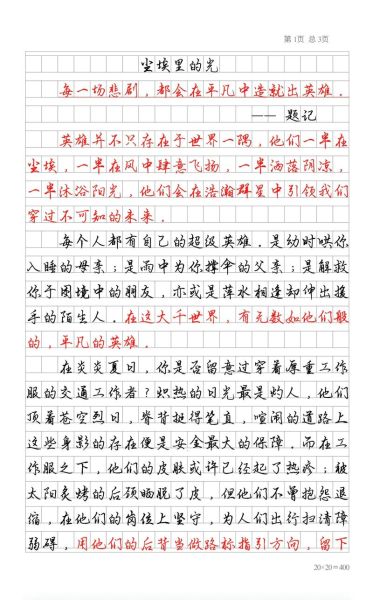 第1页 总3页
尘埃里的光
每一场悲剧，都会在平凡中造就出英雄．
—— 题记
英雄并不只存在于世界一隅，他们一半在
尘埃，一半在风中肆意飞扬，一半洒落阴凉，
一半沐浴阳光，他们会在浩瀚群星中引领我们
穿过不可知的未来．
每个人都有自己的超级英雄．是幼时哄你
入睡的母亲；是雨中为你撑伞的父亲；是解救
你于困境中的朋友，亦或是萍水相逢却伸出援
手的陌生人．在这大千世界，有无数如他们般
的，平凡的英雄．
在炎炎夏日，你是否留意过穿着厚重工作
服的交通工作者？炽热的日光最是灼人，他们
顶着苍空烈日，脊背挺得笔直，喧闹的道路上
这些身影的存在便是安全最大的保障．而在工
作服之下，他们的皮肤或许已经起了热疹；被
太阳炙烤的后颈晒脱了皮，但他们不曾抱怨退
缩，在他们的岗位上坚守，为人们出行扫清障
弱碍，用他们的后背当做路标指引方向，留下
20×20＝400